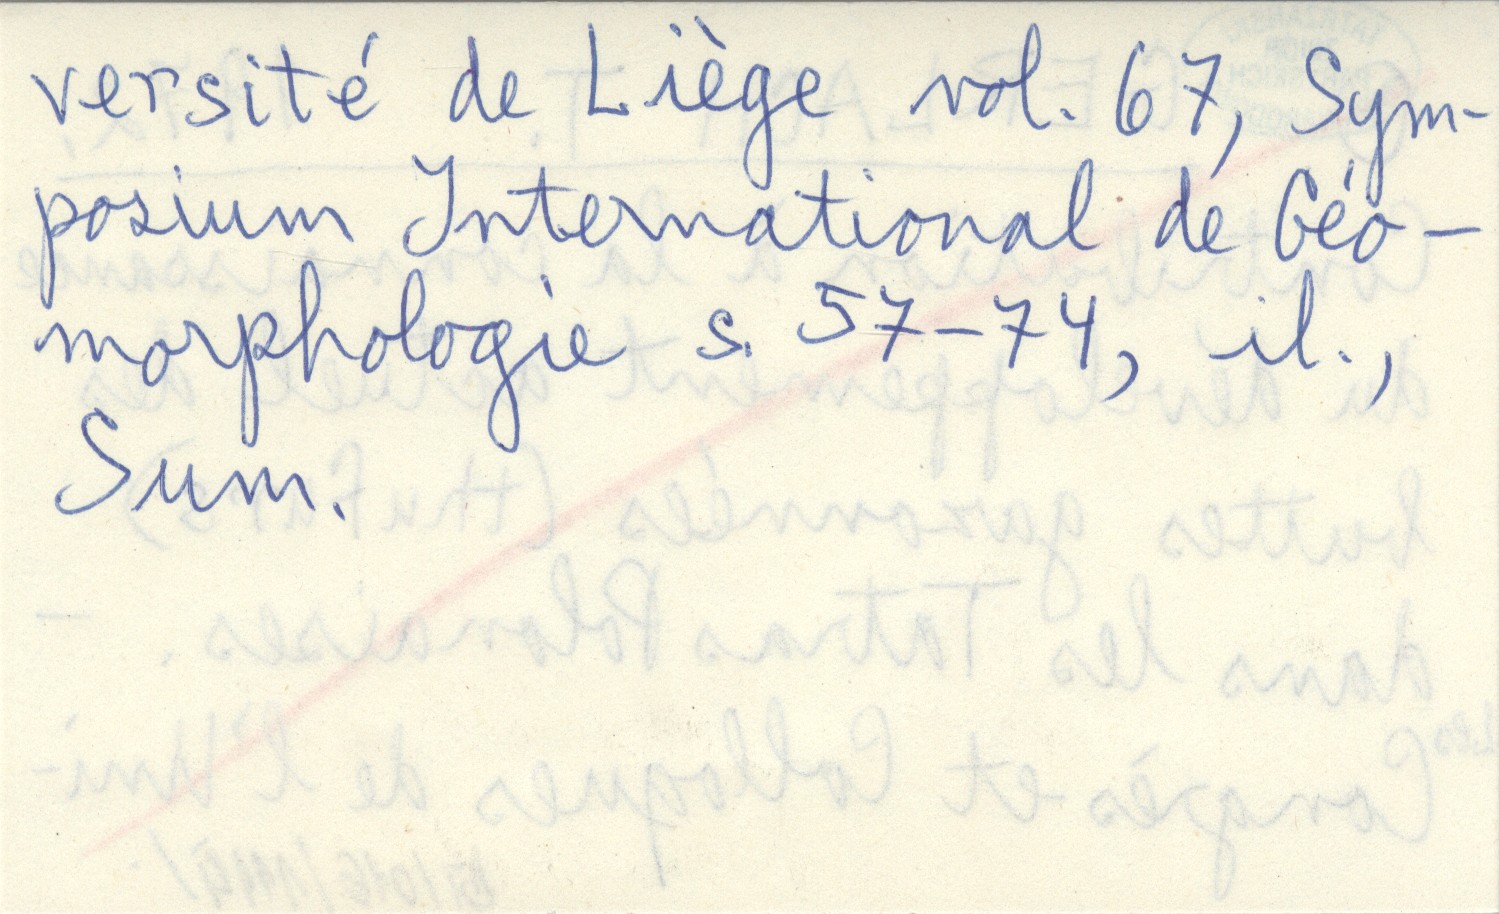 versité de Liège vol. 67, Sym-
posium International de Géo-
morphologie s. 57-74, il.,
Sum.